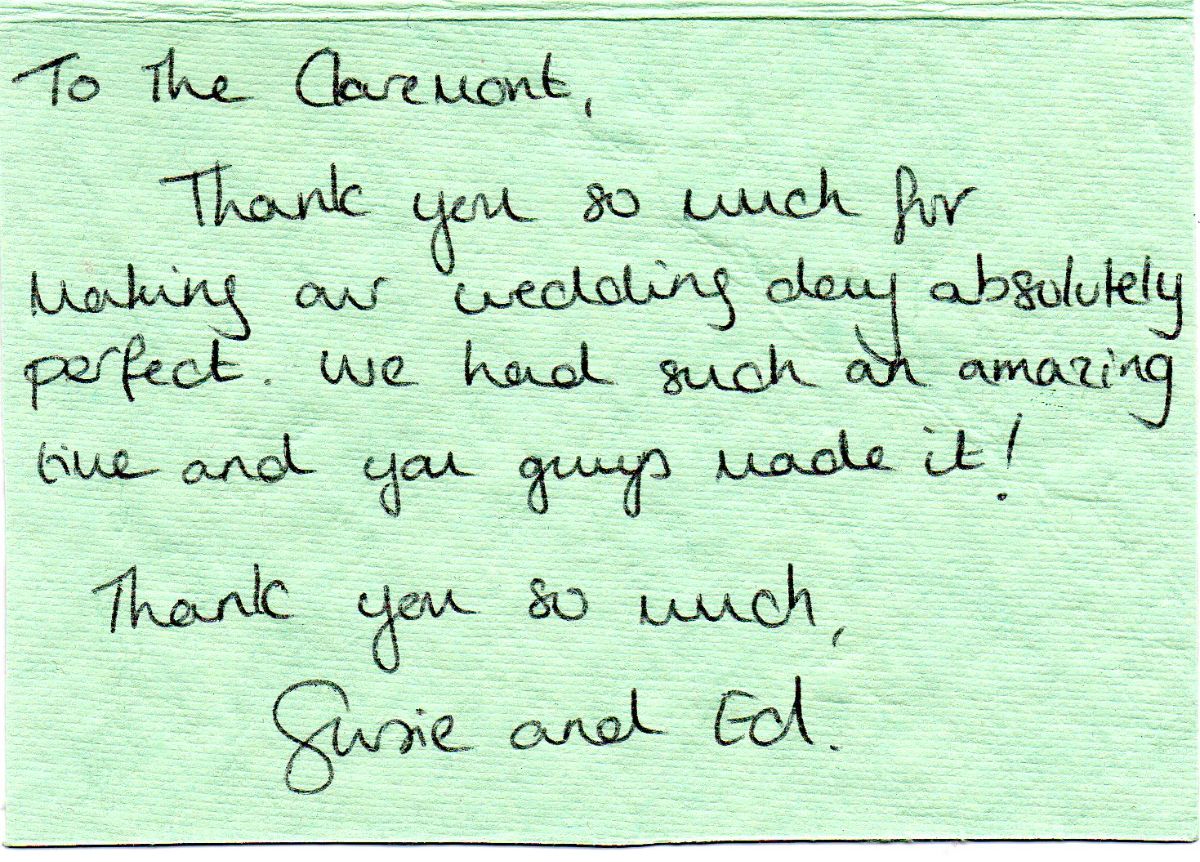 To The Claremont,
Thank you so much for
Making our wedding day absolutely
perfect. We had such an amazing
time and you guys made it!
Thank you so much,
Susie and Ed.